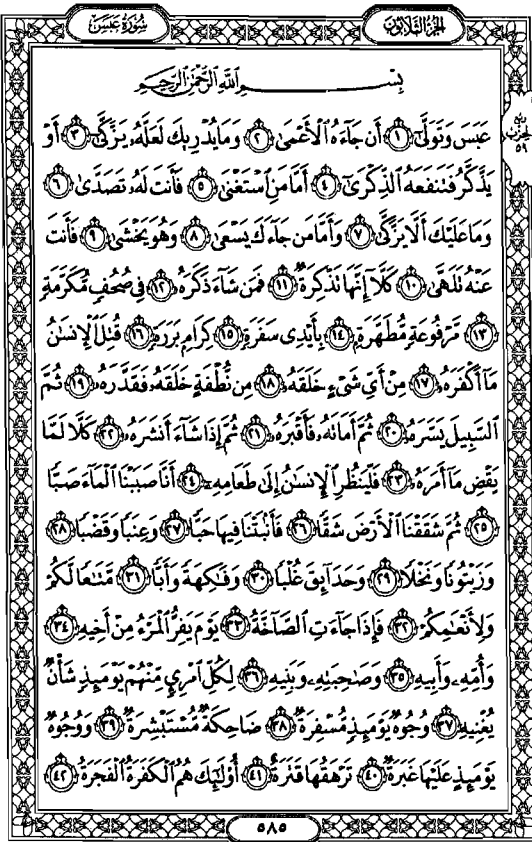 سُورَةُ عَبَسَ
الجُزْءُ الثَّلَاثُونَ
بِسْمِ اللَّهِ الرَّحْمَٰنِ الرَّحِيمِ
عَبَسَ وَتَوَلَّىٰٓ ١ أَن جَآءَهُ ٱلْأَعْمَىٰ ٢ وَمَا يُدْرِيكَ لَعَلَّهُۥ يَزَّكَّىٰٓ ٣ أَوْ
يَذَّكَّرُ فَتَنفَعَهُ ٱلذِّكْرَىٰٓ ٤ أَمَّا مَنِ ٱسْتَغْنَىٰ ٥ فَأَنتَ لَهُۥ تَصَدَّىٰ ٦
وَمَا عَلَيْكَ أَلَّا يَزَّكَّىٰ ٧ وَأَمَّا مَن جَآءَكَ يَسْعَىٰ ٨ وَهُوَ يَخْشَىٰ ٩ فَأَنتَ
عَنْهُ تَلَهَّىٰ ١٠ كَلَّآ إِنَّهَا تَذْكِرَةٌ ١١ فَمَن شَآءَ ذَكَرَهُۥ ١٢ فِى صُحُفٍ مُّكَرَّمَةٍ
١٣ مَّرْفُوعَةٍ مُّطَهَّرَةٍۭ ١٤ بِأَيْدِى سَفَرَةٍ ١٥ كِرَامٍۭ بَرَرَةٍ ١٦ قُتِلَ ٱلْإِنسَٰنُ
مَآ أَكْفَرَهُۥ ١٧ مِنْ أَىِّ شَىْءٍ خَلَقَهُۥ ١٨ مِن نُّطْفَةٍ خَلَقَهُۥ فَقَدَّرَهُۥ ١٩ ثُمَّ
ٱلسَّبِيلَ يَسَّرَهُۥ ٢٠ ثُمَّ أَمَاتَهُۥ فَأَقْبَرَهُۥ ٢١ ثُمَّ إِذَا شَآءَ أَنشَرَهُۥ ٢٢ كَلَّا لَمَّا
يَقْضِ مَآ أَمَرَهُۥ ٢٣ فَلْيَنظُرِ ٱلْإِنسَٰنُ إِلَىٰ طَعَامِهِۦٓ ٢٤ أَنَّا صَبَبْنَا ٱلْمَآءَ صَبًّا
٢٥ ثُمَّ شَقَقْنَا ٱلْأَرْضَ شَقًّا ٢٦ فَأَنۢبَتْنَا فِيهَا حَبًّا ٢٧ وَعِنَبًا وَقَضْبًا ٢٨
وَزَيْتُونًا وَنَخْلًا ٢٩ وَحَدَآئِقَ غُلْبًا ٣٠ وَفَٰكِهَةً وَأَبًّا ٣١ مَّتَٰعًا لَّكُمْ
وَلِأَنْعَٰمِكُمْ ٣٢ فَإِذَا جَآءَتِ ٱلصَّآخَّةُ ٣٣ يَوْمَ يَفِرُّ ٱلْمَرْءُ مِنْ أَخِيهِ ٣٤
وَأُمِّهِۦ وَأَبِيهِ ٣٥ وَصَٰحِبَتِهِۦ وَبَنِيهِ ٣٦ لِكُلِّ ٱمْرِئٍ مِّنْهُمْ يَوْمَئِذٍ شَأْنٌ
يُغْنِيهِ ٣٧ وُجُوهٌ يَوْمَئِذٍ مُّسْفِرَةٌ ٣٨ ضَاحِكَةٌ مُّسْتَبْشِرَةٌ ٣٩ وَوُجُوهٌ
يَوْمَئِذٍ عَلَيْهَا غَبَرَةٌ ٤٠ تَرْهَقُهَا قَتَرَةٌ ٤١ أُو۟لَٰٓئِكَ هُمُ ٱلْكَفَرَةُ ٱلْفَجَرَةُ ٤٢
ربع
الحزب
٥٩
٥٨٥